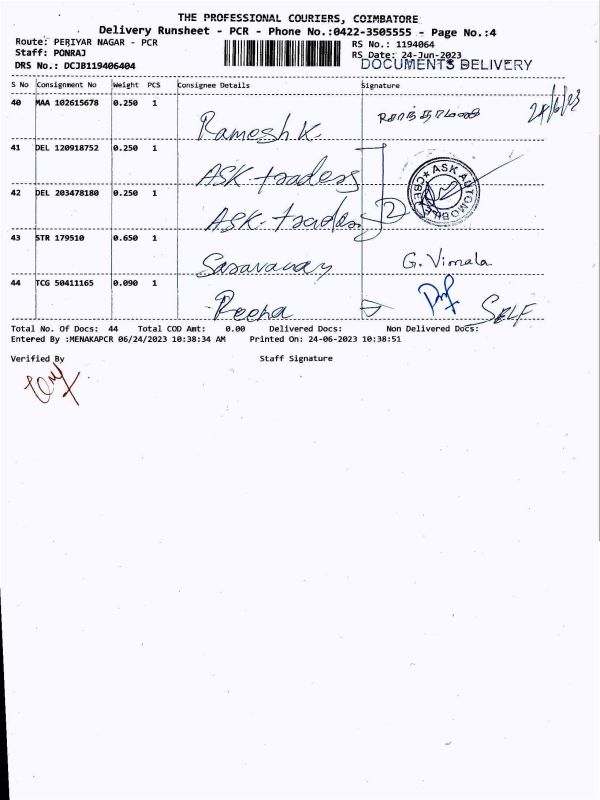 THE PROFESSIONAL COURIERS, COIMBATORE
Delivery Runsheet - PCR - Phone No.:0422-3505555 - Page No.:4
Route: PERIYAR NAGAR - PCR RS No.: 1194064
Staff: PONRAJ RS Date: 24-Jun-2023
DRS No.: DCJB119406404 DOCUMENTS DELIVERY
S No Consignment No Weight PCS Consignee Details Signature
40 MAA 102615678 0.250 1 Ramesh K.
41 DEL 120918752 0.250 1 ASK traders
ASK AUTOMOBILE CBE
42 DEL 203478180 0.250 1 ASK. traders 2
43 STR 179510 0.650 1 Saravanan G. Vimala
44 TCG 50411165 0.090 1 Reena SELF
Total No. Of Docs: 44 Total COD Amt: 0.00 Delivered Docs: Non Delivered Docs:
Entered By :MENAKAPCR 06/24/2023 10:38:34 AM Printed On: 24-06-2023 10:38:51
Verified By Staff Signature